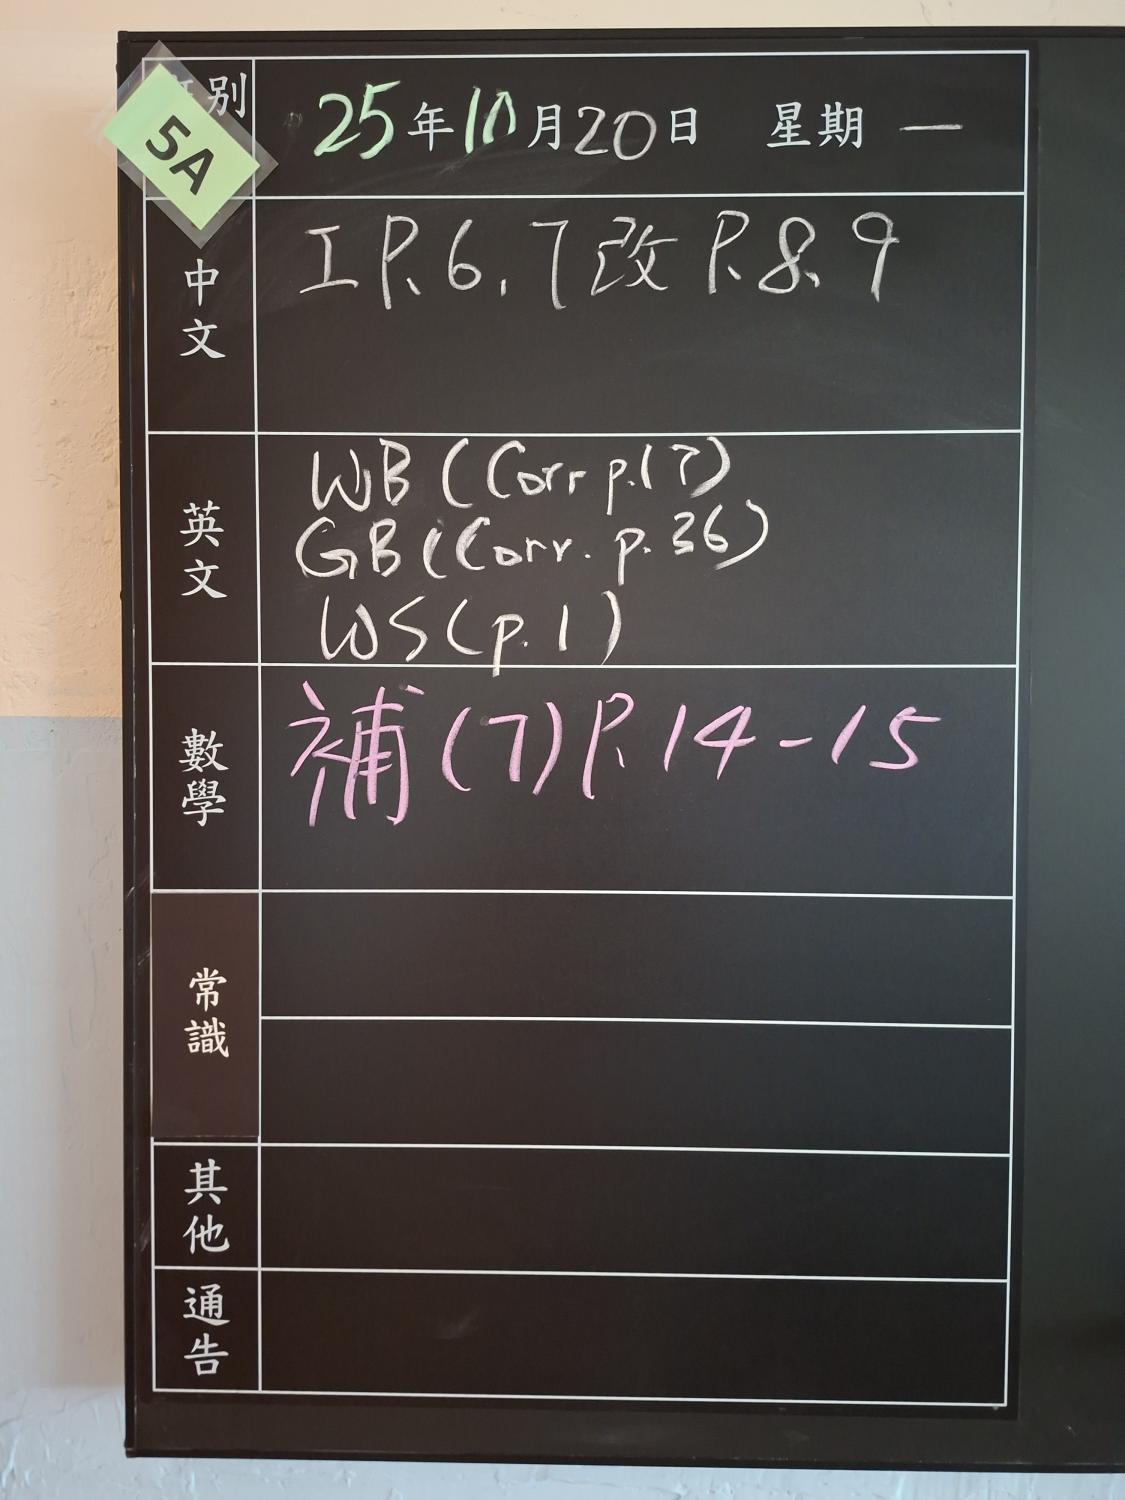 別
5A
25年10月20日 星期一
中文
工 P.6,7 改 P.8,9
英文
WB (Corr p.17)
GB (Corr. p.36)
WS (p.1)
數學
補(7) P.14-15
常識
其他
通告